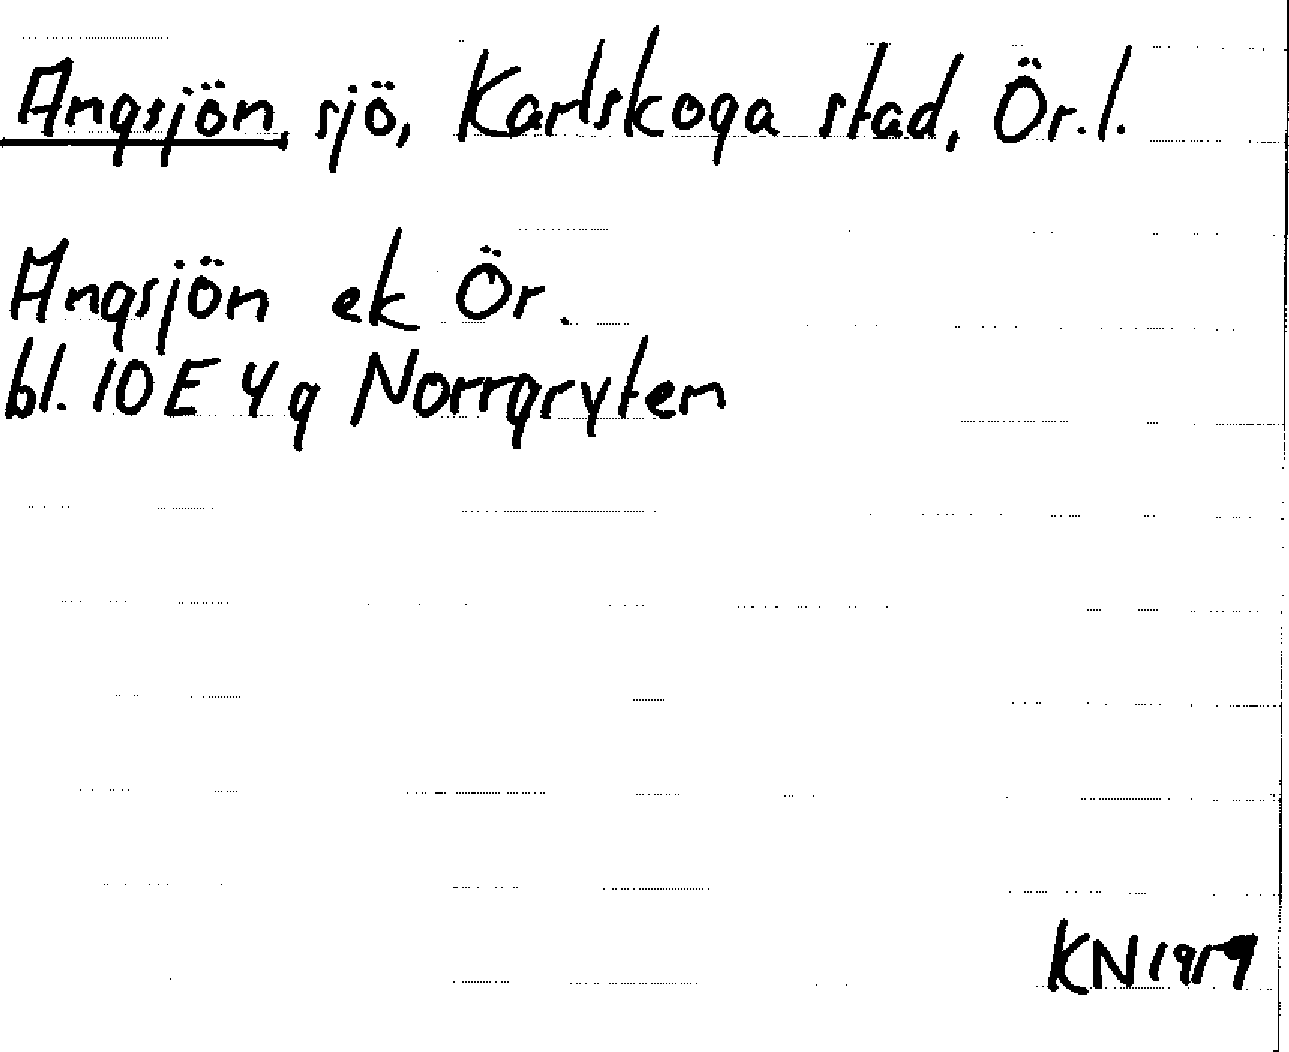 Angsjön, sjö, Karlskoga stad, Ör.l.
Angsjön ek Ör.
bl. 10E4g Norrgryten